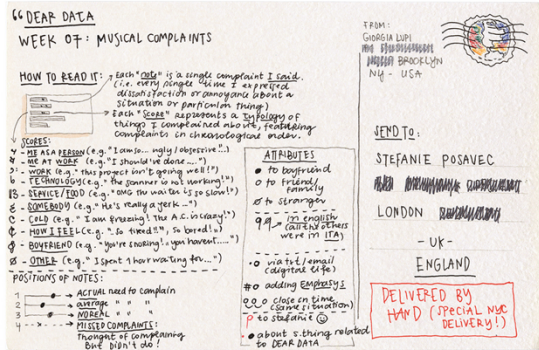 "DEAR DATA
WEEK 07: MUSICAL COMPLAINTS
HOW TO READ IT:
Each "note" is a single complaint I said.
(i.e. every single time I expressed
dissatisfaction or annoyance about a
situation or particular thing)
Each "score" represents a typology of
things I complained about, featuring
complaints in chronological order.
SCORES:
ME AS A PERSON (e.g. "I am so... ugly/obsessive"..)
ME AT WORK (e.g. "I should've done....")
WORK (e.g. "this project isn't going well!")
TECHNOLOGY (e.g. "the scanner is not working!")
SERVICE/FOOD (e.g. "OMG the waiter is so slow!")
SOMEBODY (e.g. "He's really a jerk...")
COLD (e.g. "I am freezing! The A.C. is crazy!")
HOW I FEEL (e.g. "..so tired!", so bored!..)
BOYFRIEND (e.g. "You're snoring! & you haven't....")
OTHER (e.g. "I spent 1 hour waiting for...")
POSITIONS OF NOTES:
1 ACTUAL need to complain
2 average " " "
3 NOREAL " " "
4 MISSED COMPLAINTS:
Thought of complaining
But DIDN'T do!
ATTRIBUTES
to boyfriend
to friend/
family
to stranger
in english
(all the others
were in ITA)
via txt/email
(digital life)
# adding EMPHASYS
close on time
(same situation)
to stefanie
about s.thing related
to DEAR DATA
FROM:
GIORGIA LUPI
BROOKLYN
NY - USA
SEND TO:
STEFANIE POSAVEC
LONDON
-UK-
ENGLAND
DELIVERED BY
HAND (SPECIAL NYC
DELIVERY!)